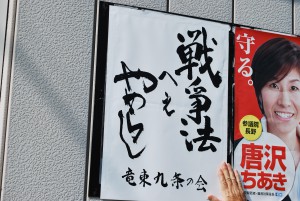 戦争法
へえ
やめしょ
竜東九条の会
守る。
参議院
長野
唐沢
ちあき